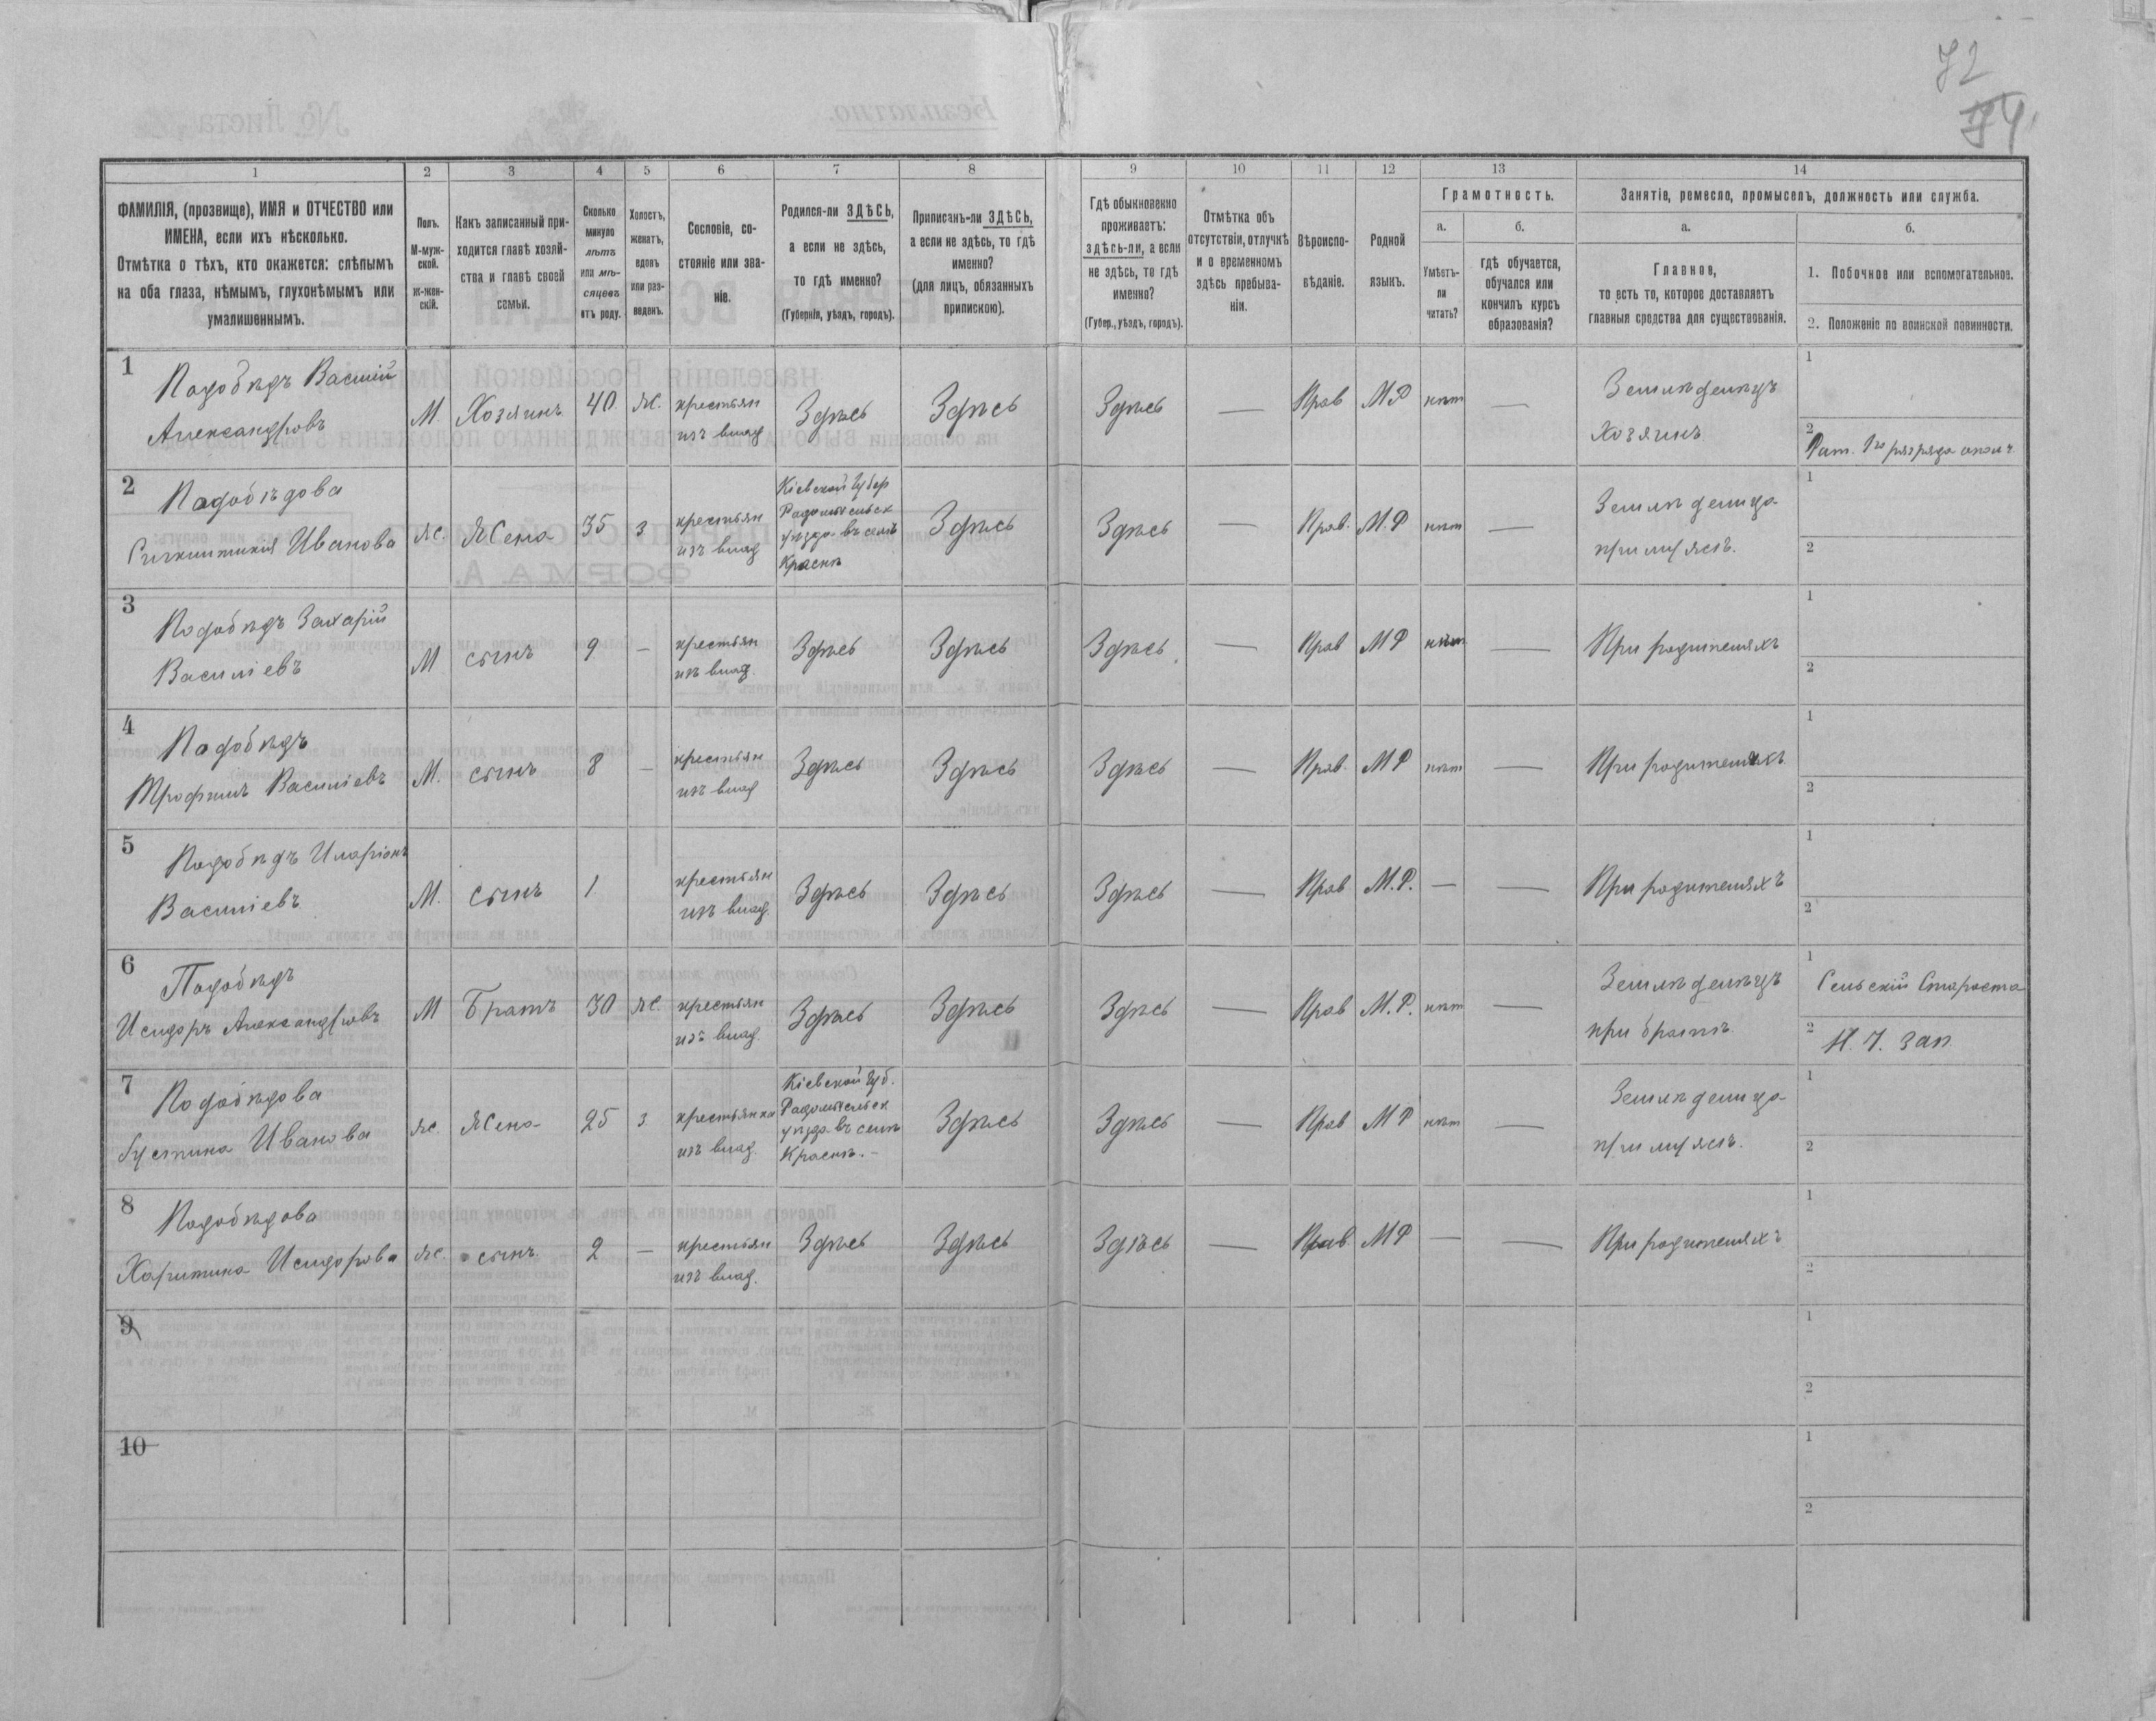 72
74
1 2 3 4 5 6 7 8 9 10 11 12 13 14
ФАМИЛІЯ, (прозвище), ИМЯ и ОТЧЕСТВО или
ИМЕНА, если ихъ нѣсколько.
Отмѣтка о тѣхъ, кто окажется: слѣпымъ
на оба глаза, нѣмымъ, глухонѣмымъ или
умалишеннымъ.
Полъ.
М-муж-
ской.
ж-жен-
скій.
Какъ записанный при-
ходится главѣ хозяй-
ства и главѣ своей
семьи.
Сколько
минуло
лѣтъ
или мѣ-
сяцевъ
отъ роду.
Холостъ,
женатъ,
вдовъ
или раз-
веденъ.
Сословіе, со-
стояніе или зва-
ніе.
Родился-ли ЗДѢСЬ,
а если не здѣсь,
то гдѣ именно?
(Губернія, уѣздъ, городъ).
Приписанъ-ли ЗДѢСЬ,
а если не здѣсь, то гдѣ
именно?
(для лицъ, обязанныхъ
припискою).
Гдѣ обыкновенно
проживаетъ:
здѣсь-ли, а если
не здѣсь, то гдѣ
именно?
(Губер., уѣздъ, городъ).
Отмѣтка объ
отсутствіи, отлучкѣ
и о временномъ
здѣсь пребыва-
ніи.
Вѣроиспо-
вѣданіе.
Родной
языкъ.
Грамотность.
а.
Умѣетъ-
ли
читать?
б.
гдѣ обучается,
обучался или
кончилъ курсъ
образованія?
Занятіе, ремесло, промыселъ, должность или служба.
а.
Главное,
то есть то, которое доставляетъ
главныя средства для существованія.
б.
1. Побочное или вспомогательное.
2. Положеніе по воинской повинности.
1 Подобѣдъ Василій
Александровъ
М. Хозяинъ 40. Ж. крестьян
изъ влад
Здѣсь Здѣсь Здѣсь — Прав М Р нѣт —
Земледѣлецъ
Хозяинъ
1
2 Рат. 1го разряда ополч.
2 Подобѣдова
Иванова
ж. Жена 35 з крестьян
изъ влад
Кіевской Губер
Радомысльск
уѣзда въ селѣ
Краснѣ
Здѣсь Здѣсь — Прав. М.Р нѣт —
Земледѣлица
при мужѣ.
1
2
3 Подобѣдъ Захарій
Василіевъ
М сынъ 9 — крестьян
изъ влад.
Здѣсь Здѣсь Здѣсь — Прав М Р нѣт —
При родителяхъ
1
2
4 Подобѣдъ
Трофимъ Василіевъ
М. сынъ 8 — крестьян
изъ влад
Здѣсь Здѣсь Здѣсь — Прав. М Р нѣт —
При родителяхъ
1
2
5 Подобѣдъ Иларіонъ
Василіевъ
М. сынъ 1 крестьян
изъ влад.
Здѣсь Здѣсь Здѣсь — Прав М.Р. — —
При родителяхъ
1
2
6 Подобѣдъ
Исидоръ Александровъ
М Братъ 30 ж. крестьян
изъ влад
Здѣсь Здѣсь Здѣсь — Прав М.Р. нѣт —
Земледѣлецъ
при братѣ.
1 Сельскій Староста
2 Н. Ч. зап
7 Подобѣдова
Устина Иванова
ж. Жена 25 з крестьянка
изъ влад.
Кіевской Губ.
Радомысльск
уѣзда въ селѣ
Краснѣ. -
Здѣсь Здѣсь — Прав М Р нѣт —
Земледѣлица
при мужѣ.
1
2
8 Подобѣдова
Харитина Исидорова
ж. сынъ. 2 — крестьян
изъ влад.
Здѣсь Здѣсь Здѣсь — Прав. М Р — —
При родителяхъ
1
2
9
1
2
10
1
2